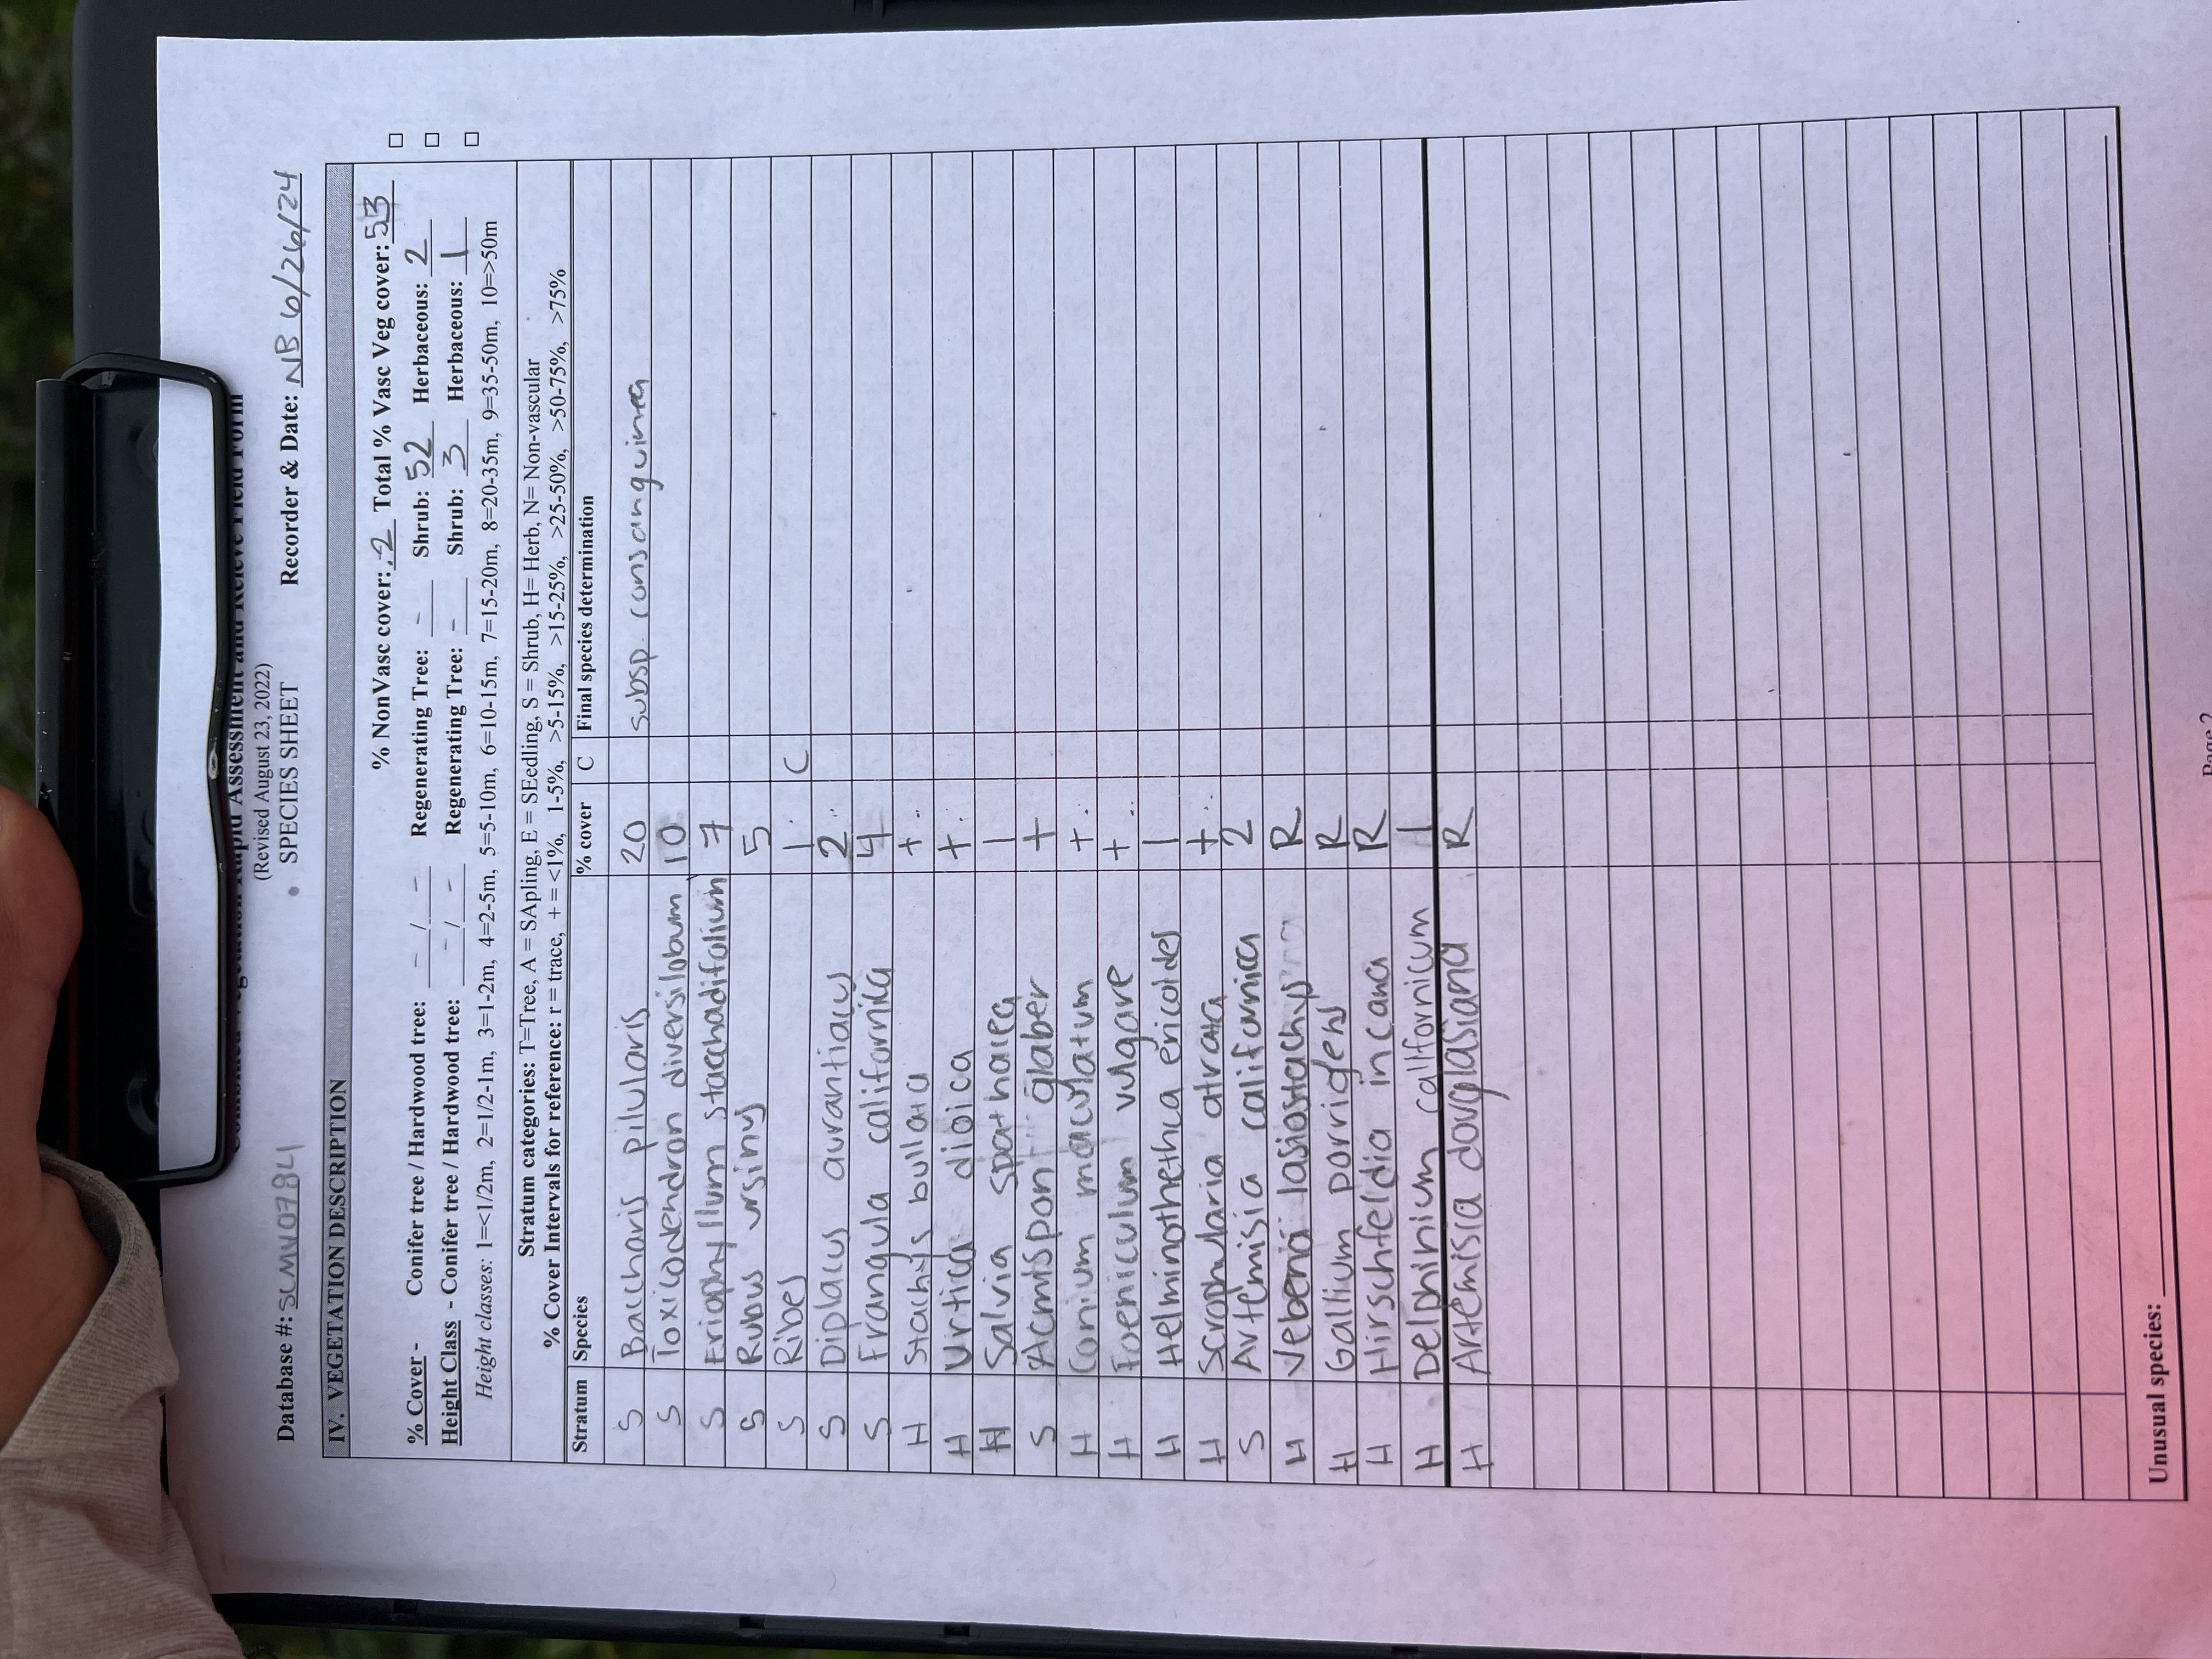 Combined Vegetation Rapid Assessment and Relevé Field Form
(Revised August 23, 2022)
SPECIES SHEET
Database #: SCMV0784 Recorder & Date: NB 6/26/24
IV. VEGETATION DESCRIPTION
% NonVasc cover: .2 Total % Vasc Veg cover: 53
% Cover - Conifer tree / Hardwood tree: - / - Regenerating Tree: - Shrub: 52 Herbaceous: 2
Height Class - Conifer tree / Hardwood tree: - / - Regenerating Tree: - Shrub: 3 Herbaceous: 1
Height classes: 1=<1/2m, 2=1/2-1m, 3=1-2m, 4=2-5m, 5=5-10m, 6=10-15m, 7=15-20m, 8=20-35m, 9=35-50m, 10=>50m
Stratum categories: T=Tree, A = SApling, E = SEedling, S = Shrub, H= Herb, N= Non-vascular
% Cover Intervals for reference: r = trace, + = <1%, 1-5%, >5-15%, >15-25%, >25-50%, >50-75%, >75%
Stratum Species % cover C Final species determination
S Baccharis pilularis 20 subsp. consanguinea
S Toxicodendron diversilobum 10
S Eriophyllum staechadifolium 7
S Rubus ursinus 5
S Ribes 1 C
S Diplacus aurantiacus 2
S Frangula californica 4
H Stachys bullata +
H Urtica dioica +
H Salvia spathacea 1
S Acmispon glaber +
H Conium maculatum +
H Foeniculum vulgare +
H Helminothetha ericoides 1
H Scrophularia atrata +
S Artemisia californica 2
H Vebena lasiostachys R
H Gallium porrigens R
H Hirschfeldia incana R
H Delphinium californicum 1
H Artemisia douglasiana R
Unusual species:
Page 2